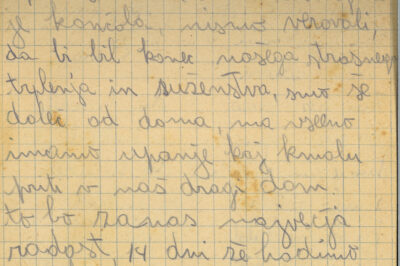 je končala, nismo verovali,
da bi bil konec našega strašnega
trplenja in suženstva, smo še
daleč od doma, ma vseeno
imamo upanje kaj kmalu
priti v naš dragi dom.
to bo za nas največja
radost, 14 dni že hodimo